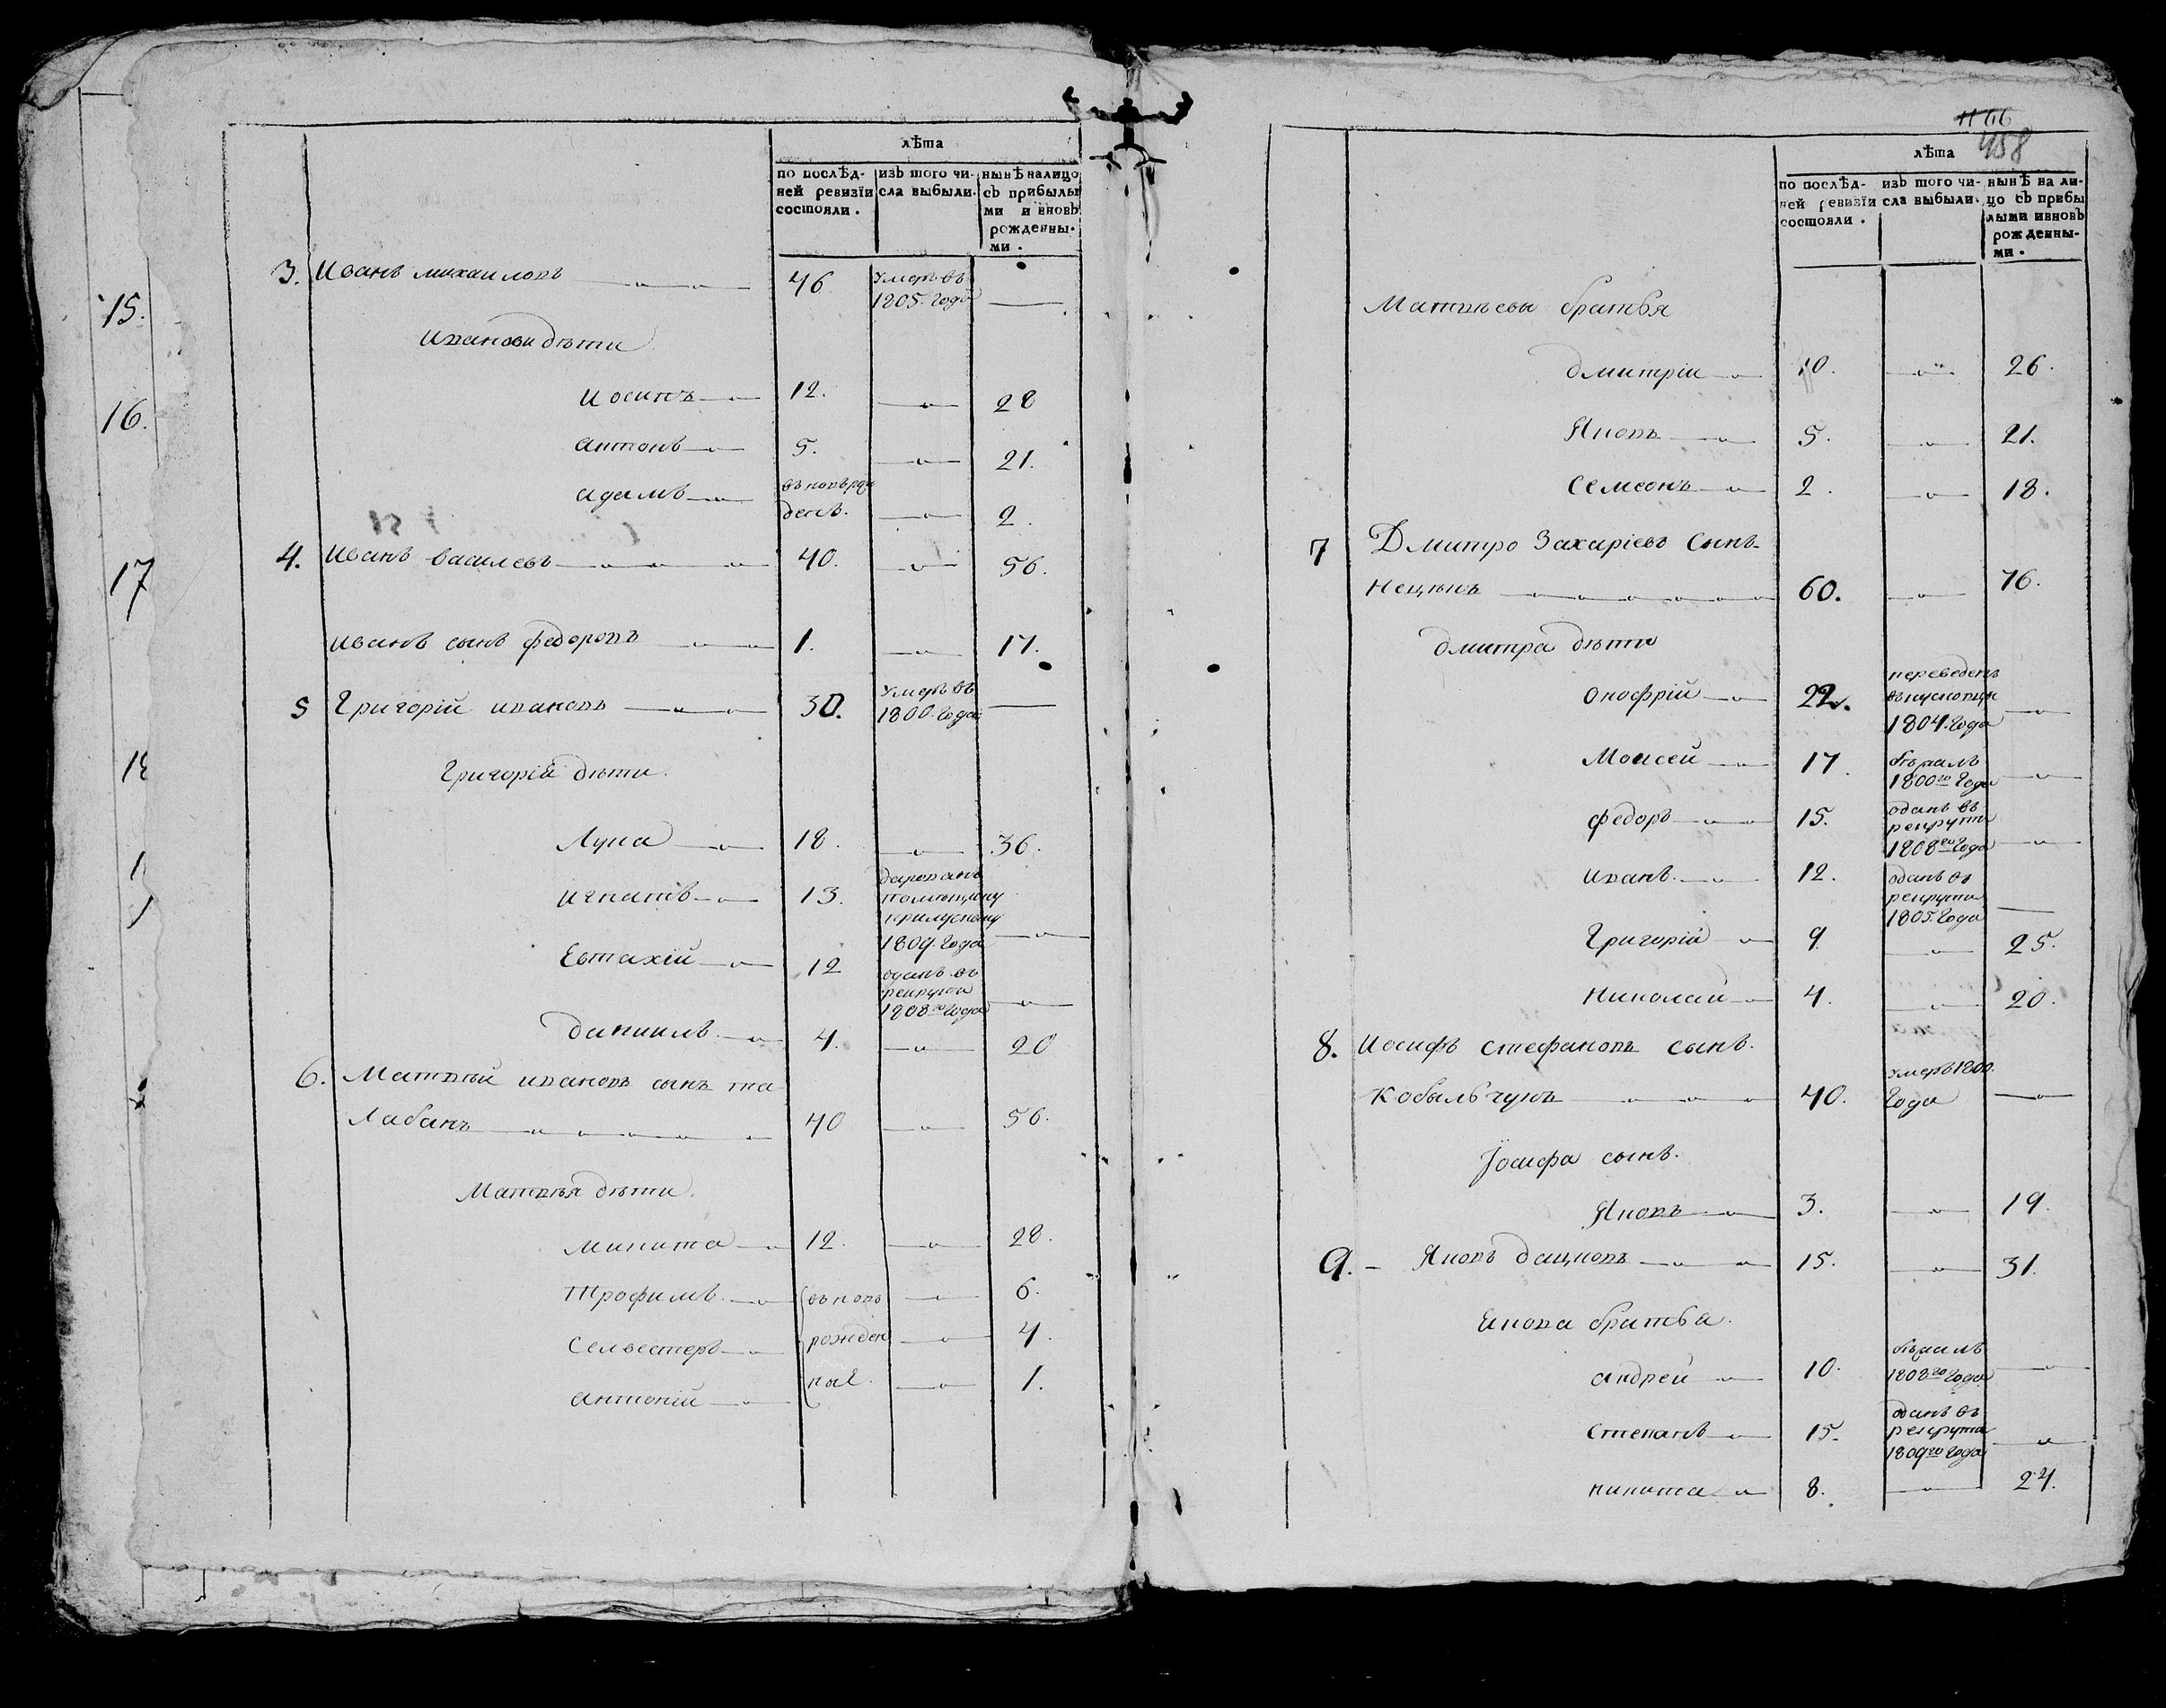 15.
16.
17
лѣта
по послѣд-
ней ревизіи
состояли.
изъ того чи-
сла выбыли.
нынѣ налицо
съ прибылы
ми и вновь
рожденны-
ми.
3. Иванъ михаиловъ 46 Умеръ въ
1805. года
Ивановы дѣти
Иосипъ 12. 28
антонъ 5. 21.
адамъ въновърож
денъ. 2.
4. Иванъ василевъ 40. 56.
иванъ сынъ федоровъ 1. 17.
5 Григорій ивановъ 30. Умеръ въ
1800. года
Григорія дѣти.
Лука 18. 36.
игнатъ 13.
1809. года
Евтахій 12 отданъ въ
рекруты
1808го года
даниилъ 4. 20
6. Матвѣй ивановъ сынъ та
Лабанъ 40 56.
Матвѣя дѣти.
микита 12. 28.
трофимъ вновь 6.
Селвестеръ рожден 4.
антоній ные. 1.
458
лѣта
по послѣд-
ней ревизіи
состояли.
изъ того чи-
сла выбыли.
нынѣ на ли-
цо съ прибы
лыми ивновь
рожденны-
ми.
Матвѣевы братья
дмитріи 10. 26.
Яковъ 5. 21.
Семеонъ 2. 18.
7 Дмитро Захаріевъ Сынъ
60. 76.
дмитра дѣти
онофрій 22. переведенъ
1804. года
Моисей 17. бѣжалъ
1800го года
федоръ 15. отданъ въ
рекруты
1808го года
иванъ 12. отданъ въ
рекруты
1805. года
Григорій 9 25.
николай 4. 20.
8. Иосифъ стефановъ сынъ.
Кобыльчукъ 40. умеръ 1800.
года
Іосифа сынъ.
Яковъ 3. 19.
9. Яковъ дацковъ 15. 31.
Якова братья.
андрей 10. бѣжалъ
1808го года
степанъ 15. отданъ въ
рекруты
1809го года
никита 8. 24.